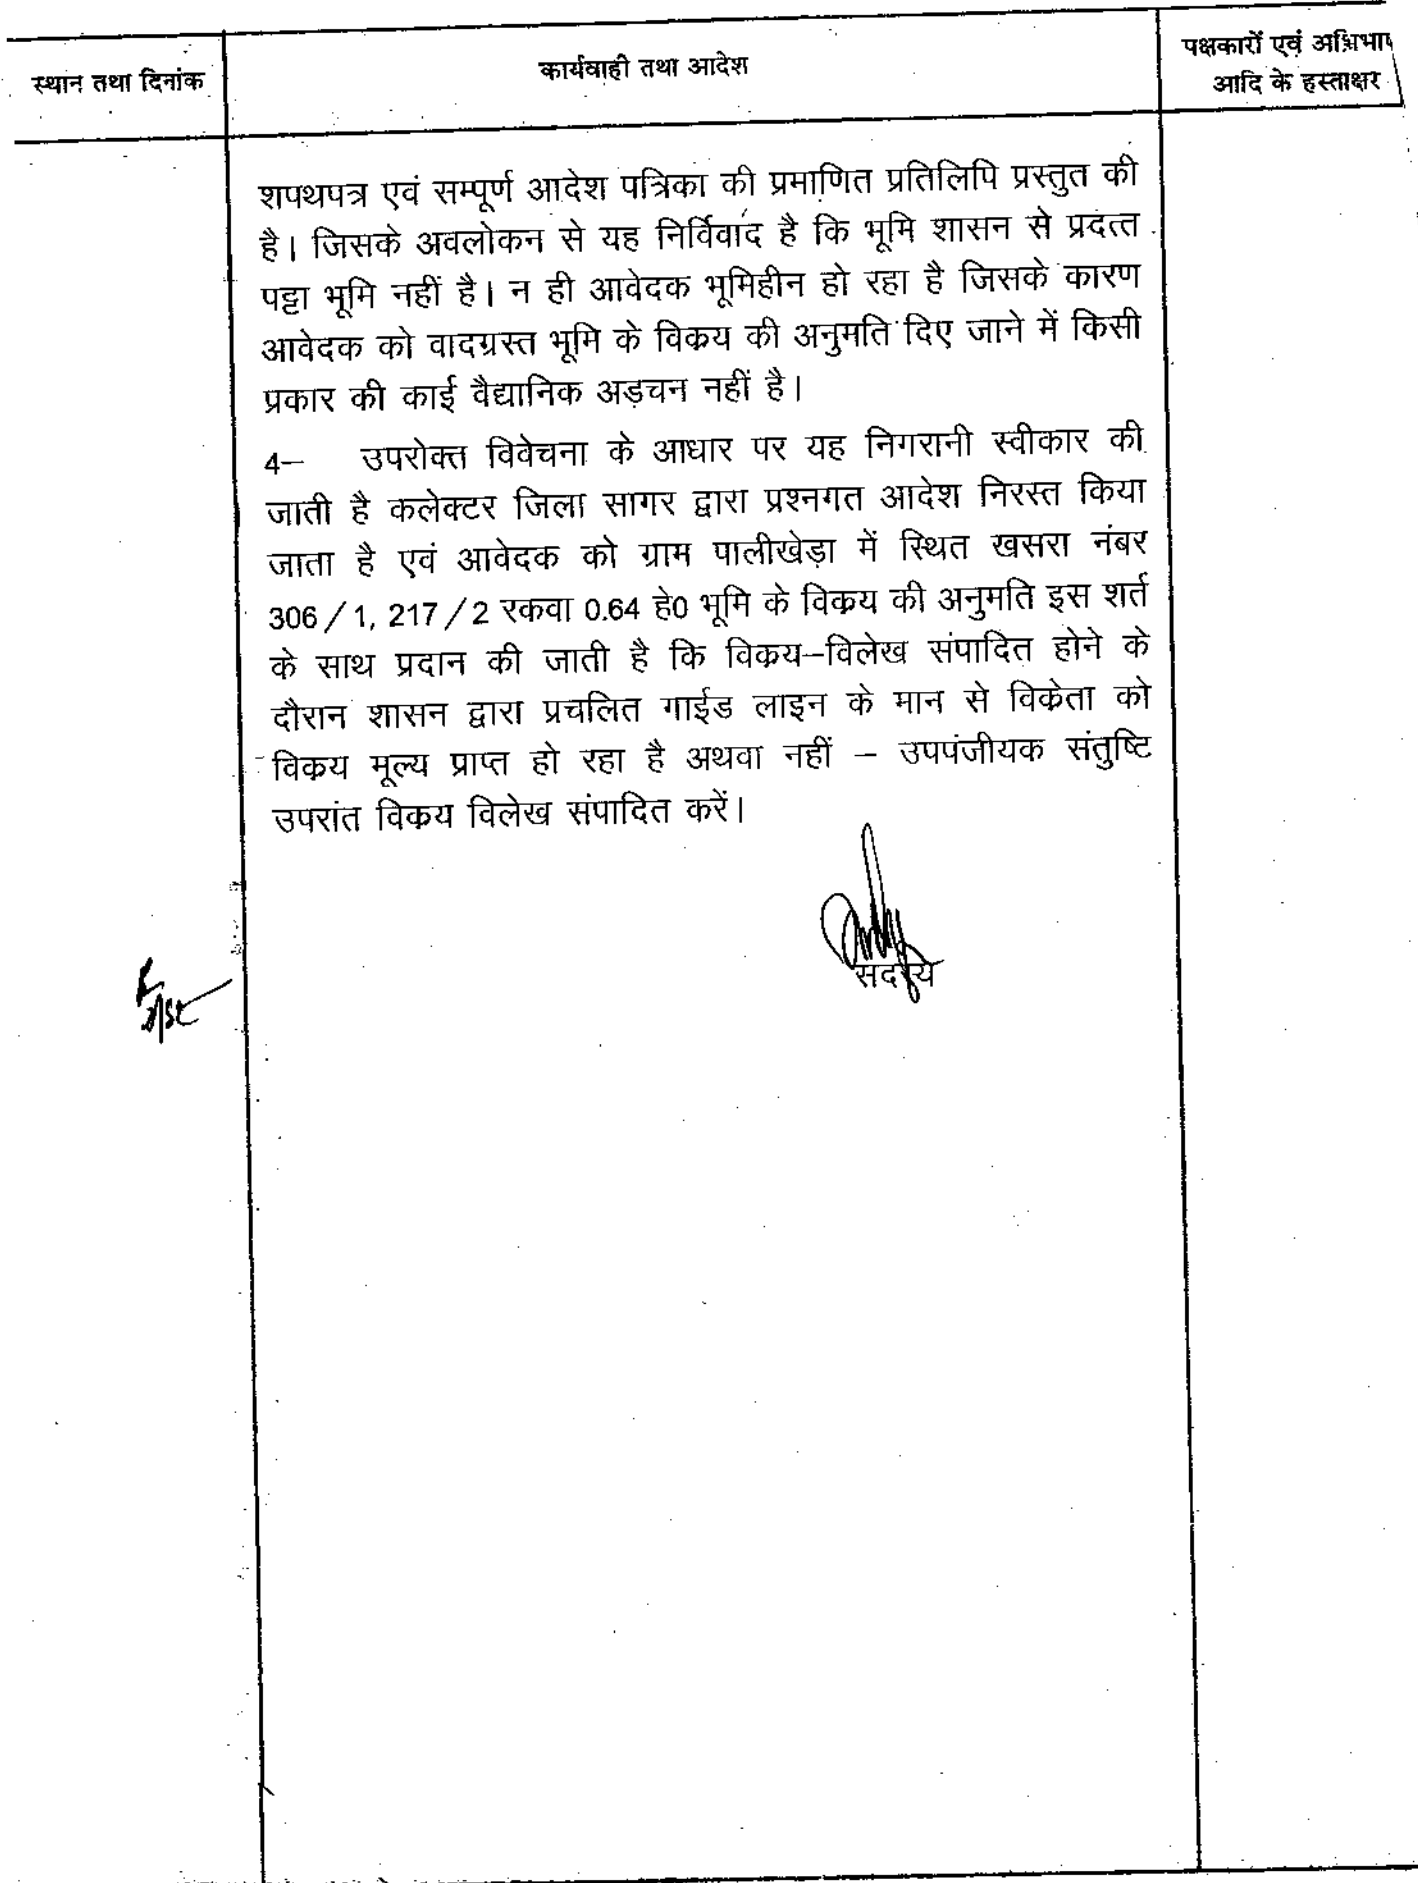 स्थान तथा दिनांक
कार्यवाही तथा आदेश
पक्षकारों एवं
आदि के हस्ताक्षर
शपथपत्र एवं सम्पूर्ण आदेश पत्रिका की प्रमाणित प्रतिलिपि प्रस्तुत की
है। जिसके अवलोकन से यह निर्विवाद है कि भूमि शासन से प्रदत्त
पट्टा भूमि नहीं है। न ही आवेदक भूमिहीन हो रहा है जिसके कारण
आवेदक को वादग्रस्त भूमि के विकय की अनुमति दिए जाने में किसी
प्रकार की काई वैद्यानिक अड़चन नहीं है।
4— उपरोक्त विवेचना के आधार पर यह निगरानी स्वीकार की
जाती है कलेक्टर जिला सागर द्वारा प्रश्नगत आदेश निरस्त किया
जाता है एवं आवेदक को ग्राम पालीखेड़ा में स्थित खसरा नंबर
306/1, 217/2 रकवा 0.64 हे0 भूमि के विकय की अनुमति इस शर्त
के साथ प्रदान की जाती है कि विकय—विलेख संपादित होने के
दौरान शासन द्वारा प्रचलित गाईड लाइन के मान से विकेता को
विकय मूल्य प्राप्त हो रहा है अथवा नहीं — उपपंजीयक संतुष्टि
उपरांत विकय विलेख संपादित करें।
सदस्य